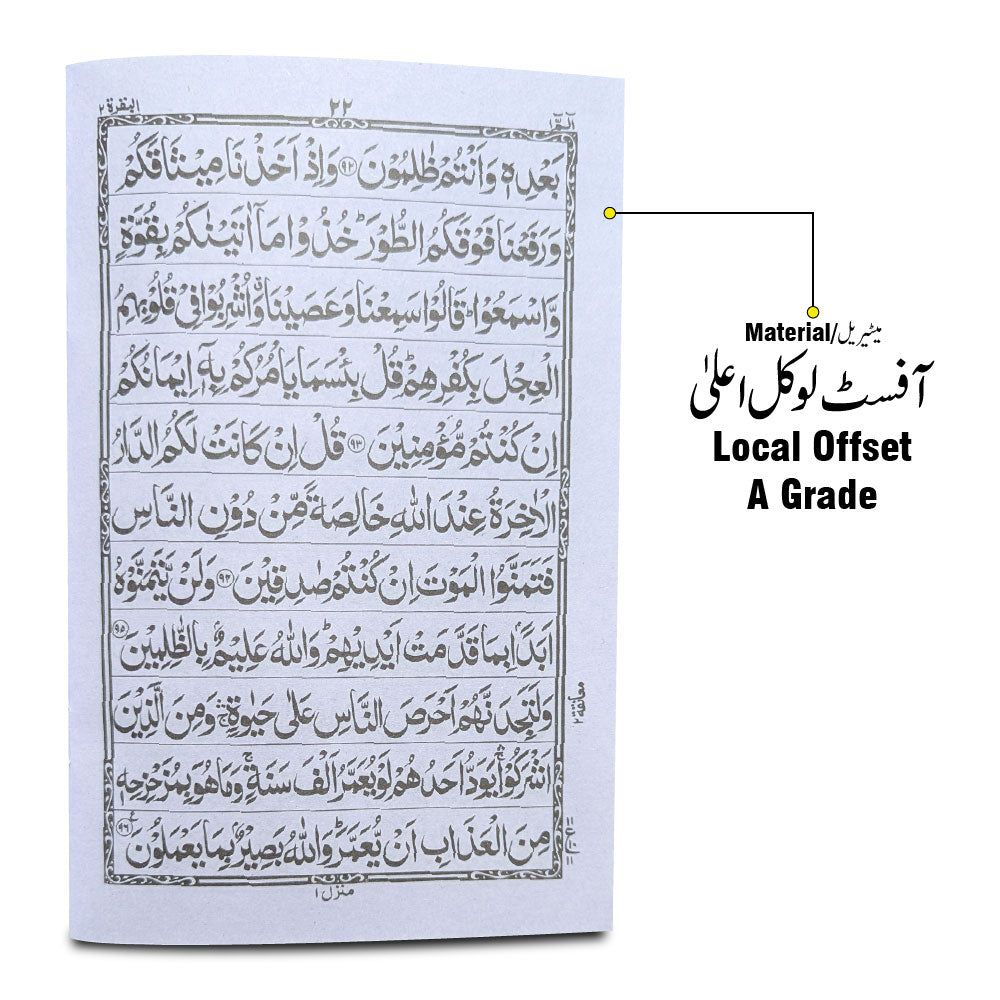 البقرة ٢
٢٢
الٓمّٓ ١
بَعْدِهٖ وَاَنْتُمْ ظٰلِمُوْنَ ﴿۹۲﴾ وَاِذْ اَخَذْنَا مِيْثَاقَكُمْ
وَرَفَعْنَا فَوْقَكُمُ الطُّوْرَ ؕ خُذُوْا مَاۤ اٰتَيْنٰكُمْ بِقُوَّةٍ
وَّاسْمَعُوْا ؕ قَالُوْا سَمِعْنَا وَعَصَيْنَا ۗ وَاُشْرِبُوْا فِيْ قُلُوْبِهِمُ
الْعِجْلَ بِكُفْرِهِمْ ؕ قُلْ بِئْسَمَا يَاْمُرُكُمْ بِهٖۤ اِيْمَانُكُمْ
اِنْ كُنْتُمْ مُّؤْمِنِيْنَ ﴿۹۳﴾ قُلْ اِنْ كَانَتْ لَكُمُ الدَّارُ
الْاٰخِرَةُ عِنْدَ اللّٰهِ خَالِصَةً مِّنْ دُوْنِ النَّاسِ
فَتَمَنَّوُا الْمَوْتَ اِنْ كُنْتُمْ صٰدِقِيْنَ ﴿۹۴﴾ وَلَنْ يَّتَمَنَّوْهُ
اَبَدًۢا بِمَا قَدَّمَتْ اَيْدِيْهِمْ ؕ وَاللّٰهُ عَلِيْمٌۢ بِالظّٰلِمِيْنَ ﴿۹۵﴾
وَلَتَجِدَنَّهُمْ اَحْرَصَ النَّاسِ عَلٰى حَيٰوةٍ ۛۚ وَمِنَ الَّذِيْنَ
معانقة ٢
اَشْرَكُوْا ۛۚ يَوَدُّ اَحَدُهُمْ لَوْ يُعَمَّرُ اَلْفَ سَنَةٍ ۚ وَمَا هُوَ بِمُزَحْزِحِهٖ
مِنَ الْعَذَابِ اَنْ يُّعَمَّرَ ؕ وَاللّٰهُ بَصِيْرٌۢ بِمَا يَعْمَلُوْنَ ﴿۹۶﴾
منزل ١
Material/میٹیریل
آفسٹ لوکل اعلیٰ
Local Offset
A Grade